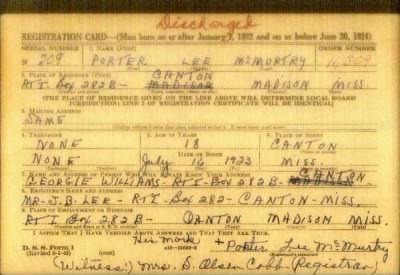 Discharged
REGISTRATION CARD—(Men born on or after January 1, 1922 and on or before June 30, 1924)
SERIAL NUMBER 1. NAME (Print) ORDER NUMBER
N 209 PORTER LEE McMORTRY
2. PLACE OF RESIDENCE (Print) CANTON
RT-1-Box 282B- MADISON MISS.
[THE PLACE OF RESIDENCE GIVEN ON THE LINE ABOVE WILL DETERMINE LOCAL BOARD
JURISDICTION; LINE 2 OF REGISTRATION CERTIFICATE WILL BE IDENTICAL]
3. MAILING ADDRESS
SAME
4. TELEPHONE 5. AGE IN YEARS 6. PLACE OF BIRTH
NONE 18 CANTON
DATE OF BIRTH
NONE July 16 1923 MISS.
7. NAME AND ADDRESS OF PERSON WHO WILL ALWAYS KNOW YOUR ADDRESS CANTON
GEORGIE WILLIAMS-RT-1-BOX 282B-
8. EMPLOYER'S NAME AND ADDRESS
MR-J.B. LEE-RT-1-BOX-282-CANTON-MISS.
9. PLACE OF EMPLOYMENT OR BUSINESS
RT-1 BOX 282B- CANTON MADISON MISS.
I AFFIRM THAT I HAVE VERIFIED ABOVE ANSWERS AND THAT THEY ARE TRUE.
D. S. S. Form 1 His mark + Porter Lee McMurtry
(Witness:) Mrs. B. Olsen Cobb (Registrar)